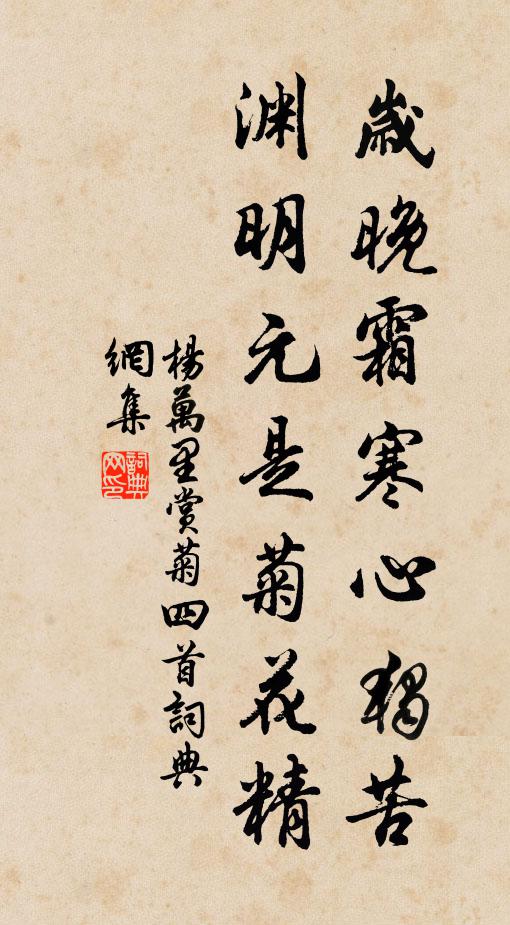 歲晚霜寒心獨苦
淵明元是菊花精
楊萬里賞菊四首詞典
網集
詞典网印